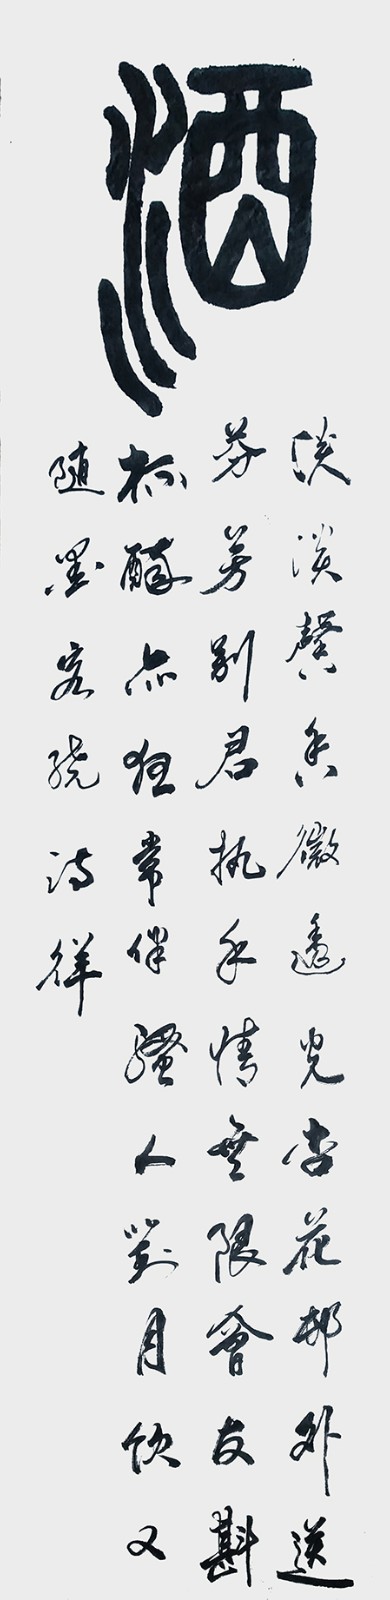 酒
淡淡馨香微透光杏花邨外送
芬芳别君执手情無限會友斟
杯醉亦狂常伴騷人對月饮又
随墨客绕诗徉